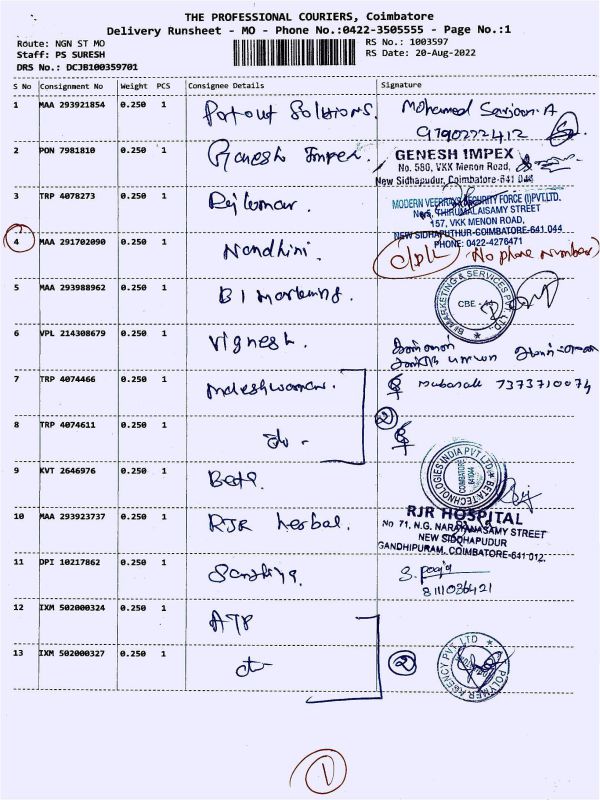 THE PROFESSIONAL COURIERS, Coimbatore
Delivery Runsheet - MO - Phone No.:0422-3505555 - Page No.:1
Route: NGN ST MO
Staff: PS SURESH
DRS No.: DCJB100359701
RS No.: 1003597
RS Date: 20-Aug-2022
S No Consignment No Weight PCS Consignee Details Signature
1 MAA 293921854 0.250 1 Mohamed
9790222412
2 PON 7981810 0.250 1 Ganesh Impex.
GENESH IMPEX
No. 580, VKK Menon Road,
New Sidhapudur, Coimbatore-641 044
3 TRP 4078273 0.250 1 Rajkumar.
MODERN SECURITY FORCE (I) PVT.LTD.
THIRUMALAISAMY STREET
157, VKK MENON ROAD,
NEW SIDHAPUTHUR-COIMBATORE-641 044
PHONE: 0422-4276471
4 MAA 291702090 0.250 1 Nandhini.
No phone number
5 MAA 293988962 0.250 1 BI Marketing.
BI MARKETING & SERVICES PVT. LTD.
CBE - 44
6 VPL 214308679 0.250 1 Vignesh.
7 TRP 4074466 0.250 1 Maheshwaran. 7373710074
8 TRP 4074611 0.250 1 do - 2
9 KVT 2646976 0.250 1 Beta.
BETA TECHNOLOGIES INDIA PVT LTD.
COIMBATORE
641044
10 MAA 293923737 0.250 1 RJR herbal.
RJR HOSPITAL
No 71, N.G. NARAYANASAMY STREET
NEW SIDDHAPUDUR
GANDHIPURAM, COIMBATORE-641 012.
11 DPI 10217862 0.250 1 Sandhiya. S. pooja
8111036421
12 IXM 502000324 0.250 1 ATP
13 IXM 502000327 0.250 1 do 2
POLYMER AGENCY PVT. LTD
1